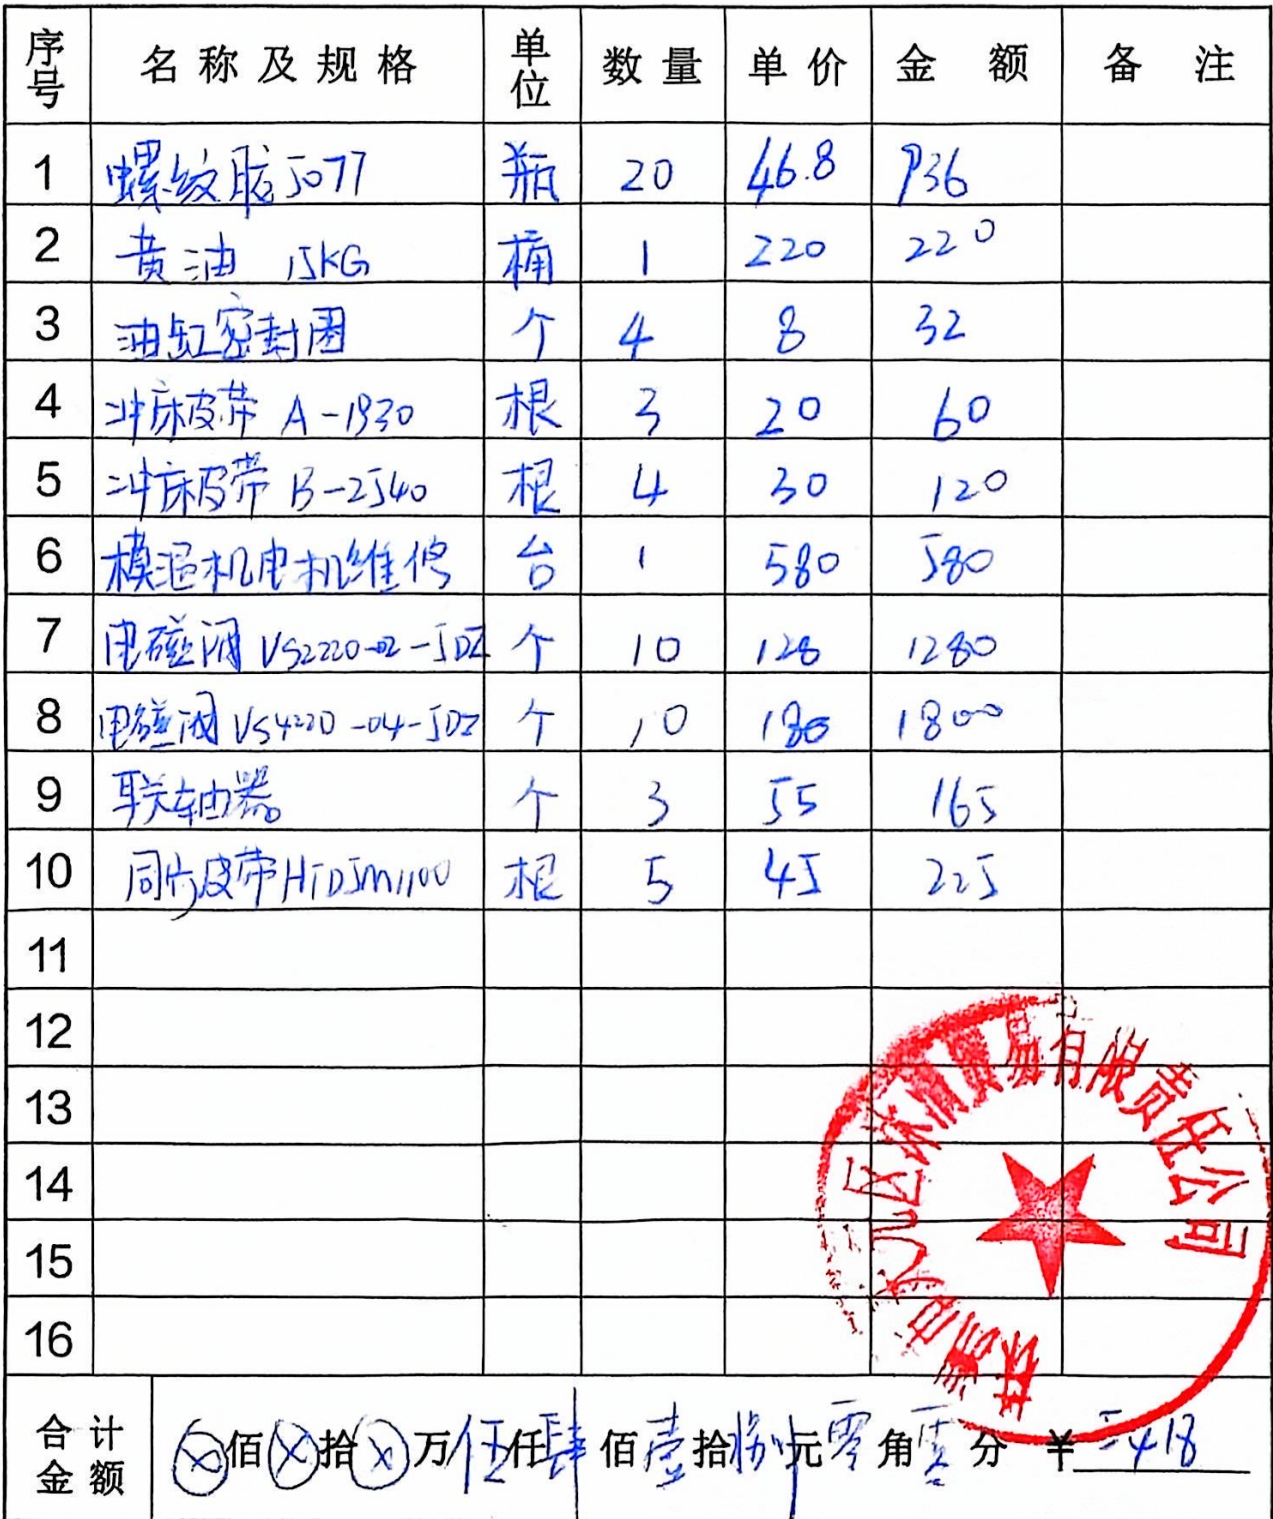 序号 名称及规格 单位 数量 单价 金额 备注
1 螺纹胶5077 瓶 20 46.8 936
2 黄油 15KG 桶 1 220 220
3 油缸密封圈 个 4 8 32
4 冲床皮带 A-1930 根 3 20 60
5 冲床皮带 B-2540 根 4 30 120
6 模温机电机维修 台 1 580 580
7 电磁阀 VS2220-02-5DZ 个 10 128 1280
8 电磁阀 VS4220-04-5DZ 个 10 180 1800
9 联轴器 个 3 55 165
10 同步皮带HTD5m1100 根 5 45 225
11
12
13
14
15
16
合计金额 ⊗佰⊗拾⊗万伍仟肆佰壹拾捌元零角零分 ¥5418
区 贸易有限责任公司